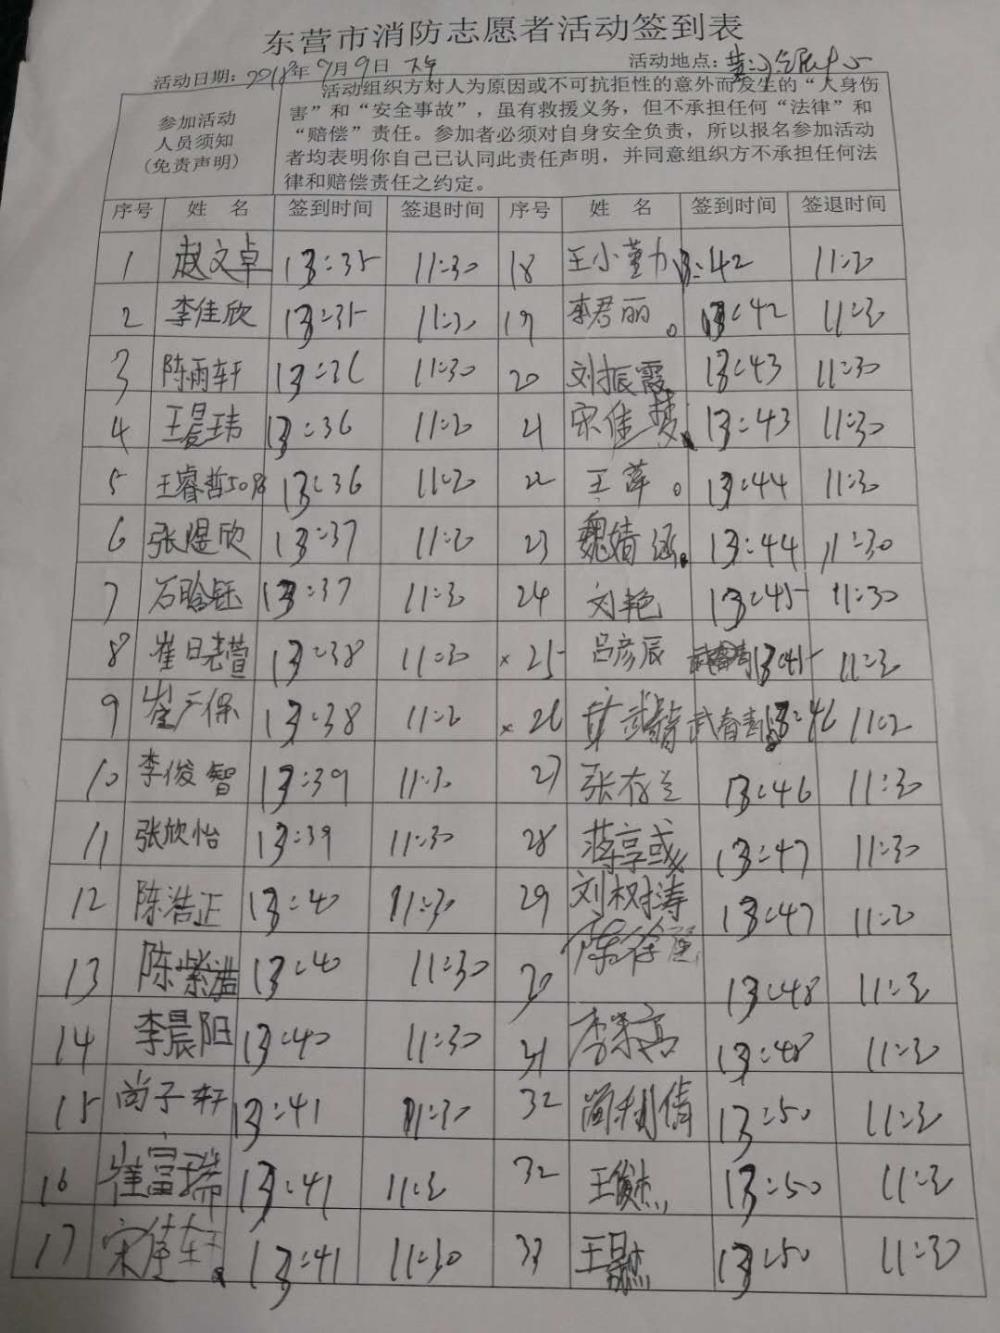 东营市消防志愿者活动签到表
活动日期：2018年9月9日 活动地点：
参加活动
人员须知
(免责声明)
活动组织方对人为原因或不可抗拒性的意外而发生的“人身伤
害”和“安全事故”，虽有救援义务，但不承担任何“法律”和
“赔偿”责任。参加者必须对自身安全负责，所以报名参加活动
者均表明你自己已认同此责任声明，并同意组织方不承担任何法
律和赔偿责任之约定。
序号 姓 名 签到时间 签退时间 序号 姓 名 签到时间 签退时间
1 赵文卓 13:35 11:30 18 王小董 13:42 11:30
2 李佳欣 13:35 11:30 19 李君丽 13:42 11:30
3 陈雨轩 13:36 11:30 20 刘振霞 13:43 11:30
4 王晨玮 13:36 11:30 21 宋佳梦 13:43 11:30
5 王睿哲 13:36 11:30 22 王萍 13:44 11:30
6 张煜欣 13:37 11:30 23 魏婧涵 13:44 11:30
7 石晗钰 13:37 11:30 24 刘艳 13:45 11:30
8 崔 13:38 11:30 ×25 吕彦辰 13:45 11:30
9 崔广保 13:38 11:30 ×26 武春 13:46 11:30
10 李俊智 13:39 11:30 27 张存兰 13:46 11:30
11 张欣怡 13:39 11:30 28 蒋享彧 13:47 11:30
12 陈浩正 13:40 11:30 29 刘树涛 13:47 11:30
13 陈紫浩 13:40 11:30 30 陈 13:48 11:30
14 李晨阳 13:40 11:30 31 李荣亭 13:48 11:30
15 尚子轩 13:41 11:30 32 13:50 11:30
16 崔富瑞 13:41 11:30 32 王俊杰 13:50 11:30
17 宋佳轩 13:41 11:30 33 王 13:50 11:30